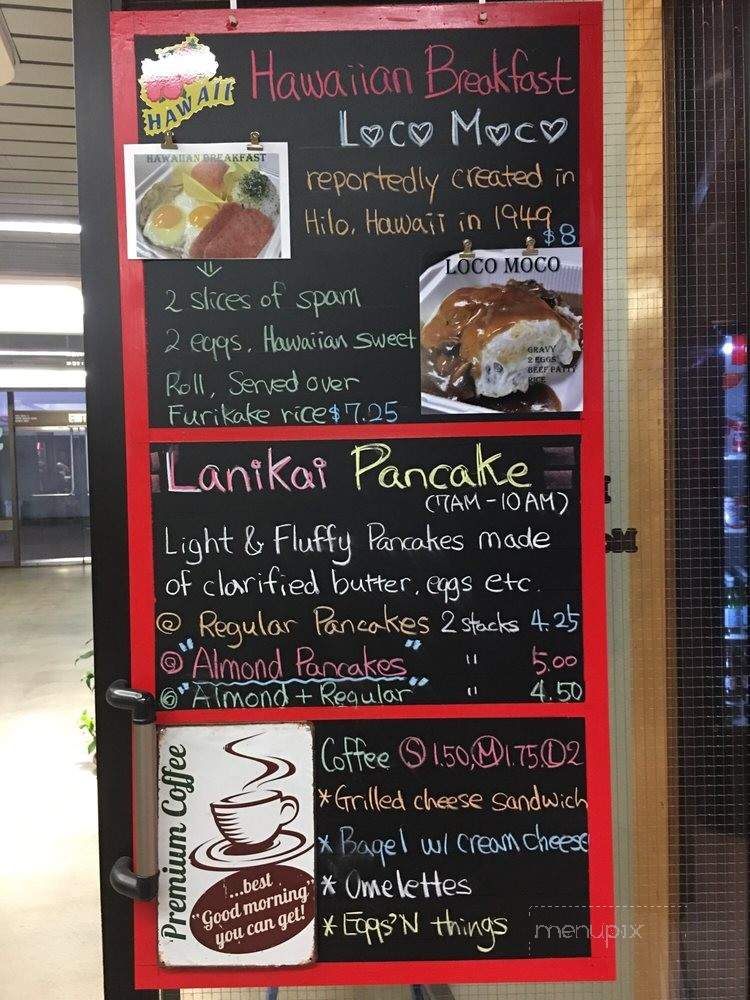 HAWAII
Hawaiian Breakfast
Loco Moco
reportedly created in
Hilo, Hawaii in 1949
$8
HAWAIIAN BREAKFAST
LOCO MOCO
GRAVY
2 EGGS
BEEF PATTY
RICE
2 slices of spam
2 eggs, Hawaiian sweet
Roll, Served over
Furikake rice $7.25
Lanikai Pancake
(7AM-10AM)
Light & Fluffy Pancakes made
of clarified butter, eggs etc.
@ Regular Pancakes 2 stacks 4.25
@ "Almond Pancakes" " 5.00
@ "Almond + Regular" " 4.50
Coffee Ⓢ 1.50, Ⓜ 1.75, Ⓛ 2
* Grilled cheese sandwich
* Bagel w/ cream cheese
* Omelettes
* Eggs'N things
Premium Coffee
...best
"Good morning"
you can get!
menupix